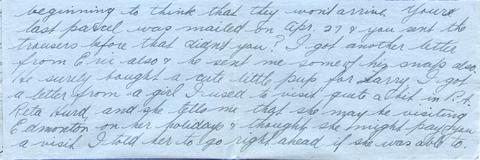 beginning to think that they won't arrive. Your
last parcel was mailed on Apr. 27 & you sent the
trousers before that didn't you? I got another letter
from Eric also & he sent me some of his snaps also.
He surely bought a cute little pup for Larry. I got
a letter from a girl I used to visit quite a bit in P.A.
Reta Hurd, and she tells me that she may be visiting
Edmonton on her holidays & thought she might pay you
a visit. I told her to go right ahead if she was able to.